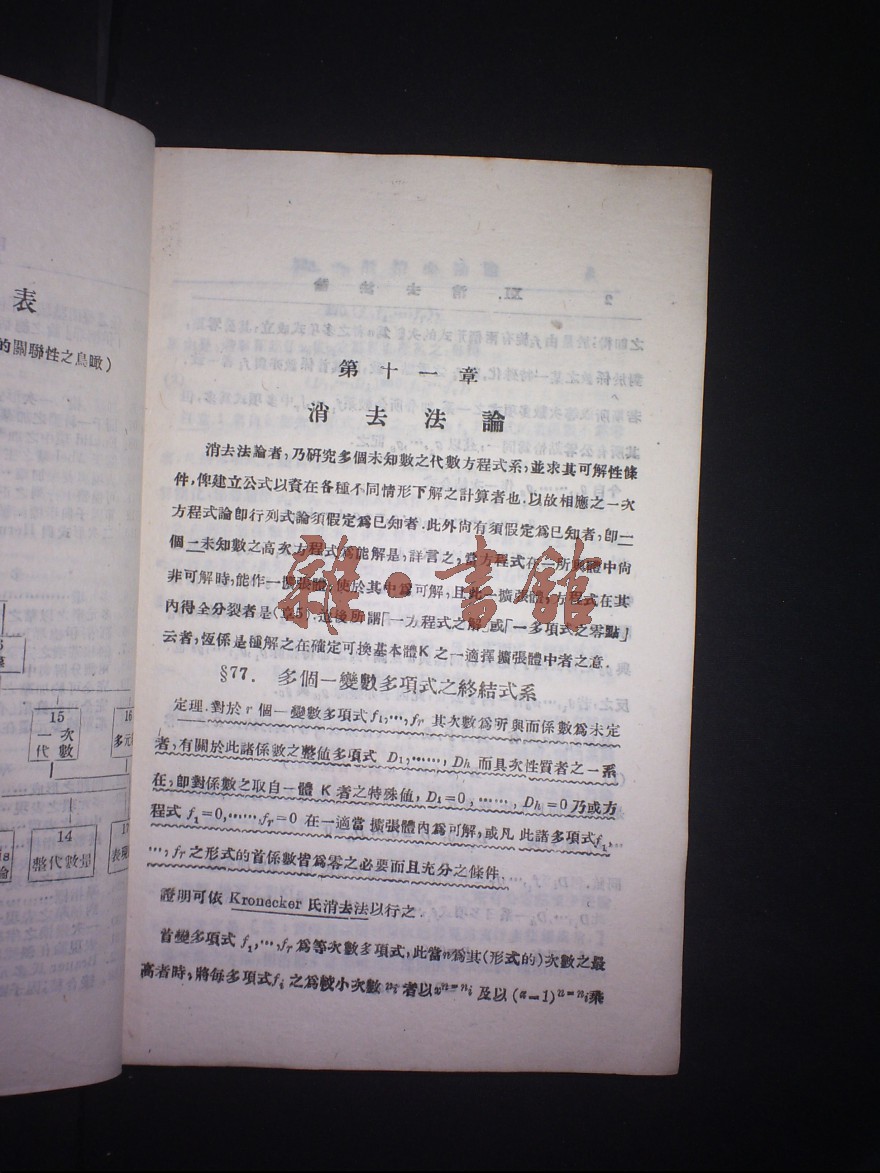 表
的關聯性之鳥瞰)
15
一次
代數
16
多元
14
整代數量
表現
第十一章
消去法論
消去法論者,乃研究多個未知數之代數方程式系,並求其可解性條
件,俾建立公式以資在各種不同情形下解之計算者也.以故相應之一次
方程式論卽行列式論須假定爲已知者.此外尙有須假定爲已知者,卽一
個一未知數之高次方程式爲能解是,詳言之,當方程式在一所與體中尙
非可解時,能作一擴張體,使於其中爲可解,且此一擴張體,方程式在其
內得全分裂者是(章5).這後所謂「一方程式之解」或「一多項式之零點」
云者,恆係是種解之在確定可換基本體K之一適擇擴張體中者之意.
§77. 多個一變數多項式之終結式系
定理.對於 r 個一變數多項式 f₁,…,fᵣ 其次數爲所與而係數爲未定
者,有關於此諸係數之整值多項式 D₁,……, Dₕ 而具次性質者之一系
在,卽對係數之取自一體 K 者之特殊值, D₁=0, ……, Dₕ=0 乃或方
程式 f₁=0,……,fᵣ=0 在一適當擴張體內爲可解,或凡此諸多項式f₁,…
…,fᵣ 之形式的首係數皆爲零之必要而且充分之條件.
證明可依 Kronecker 氏消去法以行之.
首變多項式 f₁,…,fᵣ 爲等次數多項式,此當n爲其(形式的)次數之最
高者時,將每多項式fᵢ 之爲較小次數 nᵢ 者以xⁿ⁻ⁿᵢ 及以 (x−1)ⁿ⁻ⁿᵢ乘
雜·書館